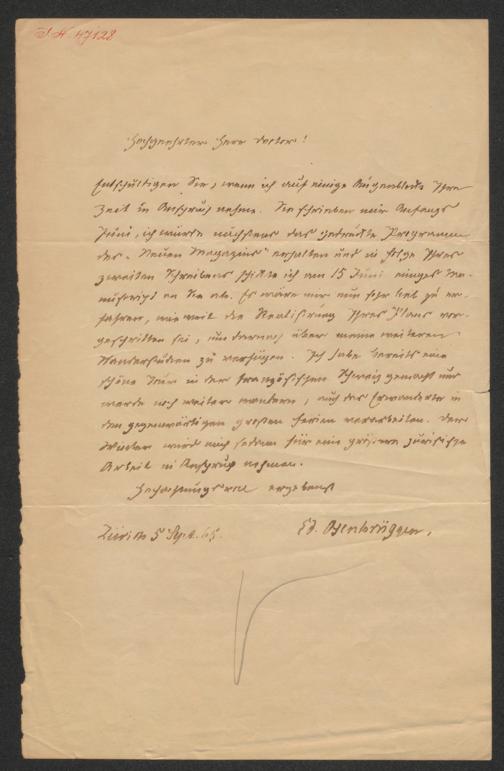 I. N. 47128
Hochgeehrter Herr Doctor!
Entschuldigen Sie, wenn ich auf einige Augenblicke Ihre
Zeit in Anspruch nehme. Sie schrieben mir Anfangs
Juni, ich würde nächstens das gedruckte Programm
des "Neuen Magazins" erhalten und in Folge Ihres
zweiten Schreibens schickte ich am 15 Juni einiges Ma-
nuscript an Sie ab. Es wäre mir nun sehr lieb zu er-
fahren, wie weit die Realisirung Ihres Plans vor-
geschritten sei, um darnach über meine weiteren
Wanderstudien zu verfügen. Ich habe bereits eine
schöne Tour in der französischen Schweiz gemacht und
werde noch weiter wandern, auch das Erwanderte in
den gegenwärtigen großen Ferien verarbeiten. Der
Winter wird mich sodann für eine größere juristische
Arbeit in Anspruch nehmen.
Hochachtungsvoll ergebenst
Zürich 5 Sept. 65. Ed. Osenbrüggen.